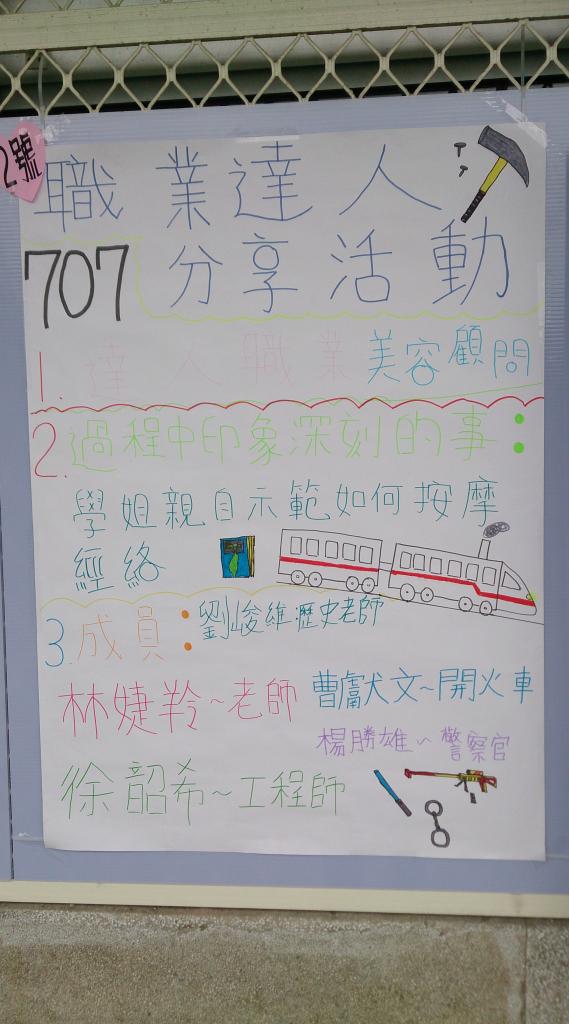 2號
職業達人
707 分享活動
1. 達人職業美容顧問
2. 過程中印象深刻的事：
學姐親自示範如何按摩
經絡
3. 成員：劉峻維:歷史老師
林婕羚~老師 曹獻文~開火車
楊勝雄~警察官
徐韶希~工程師